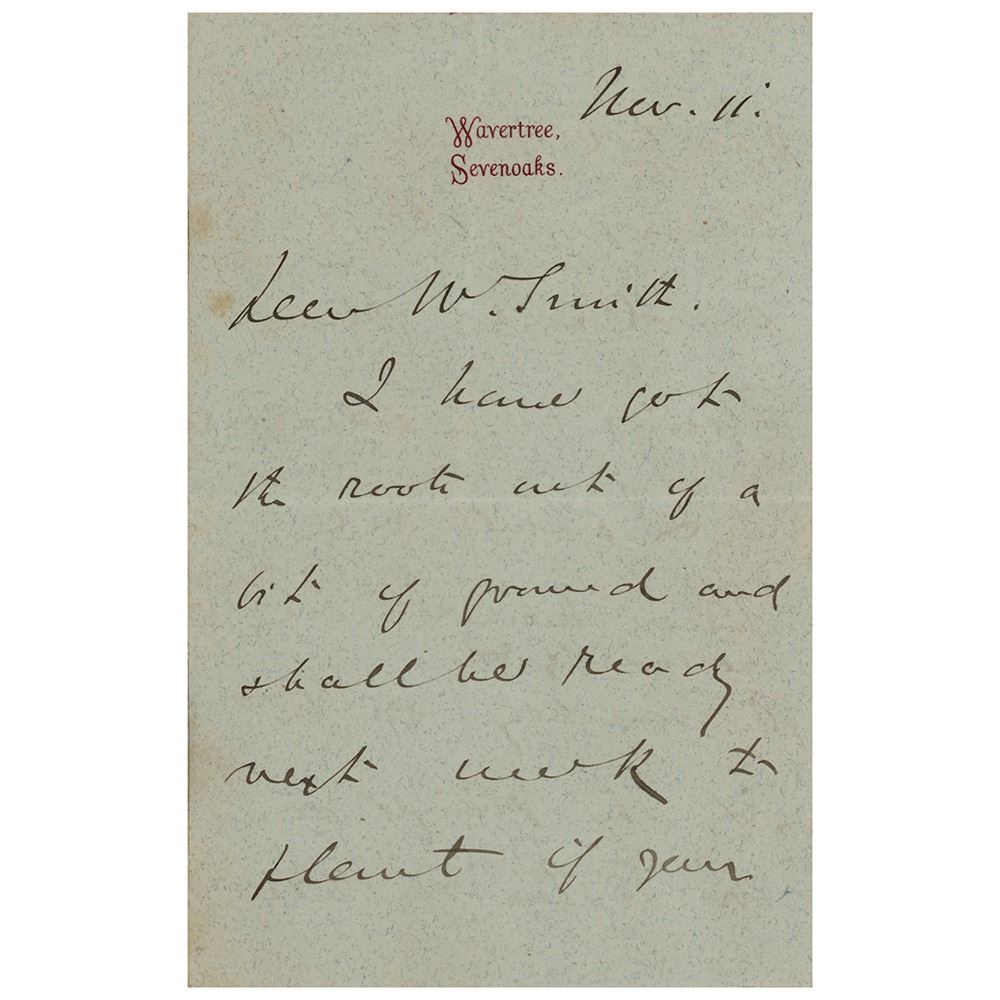 Nov. 11.
Wavertree,
Sevenoaks.
Dear Mr. Smith.
I have got
the roots out of a
bit of ground and
shall be ready
next week to
plant if your